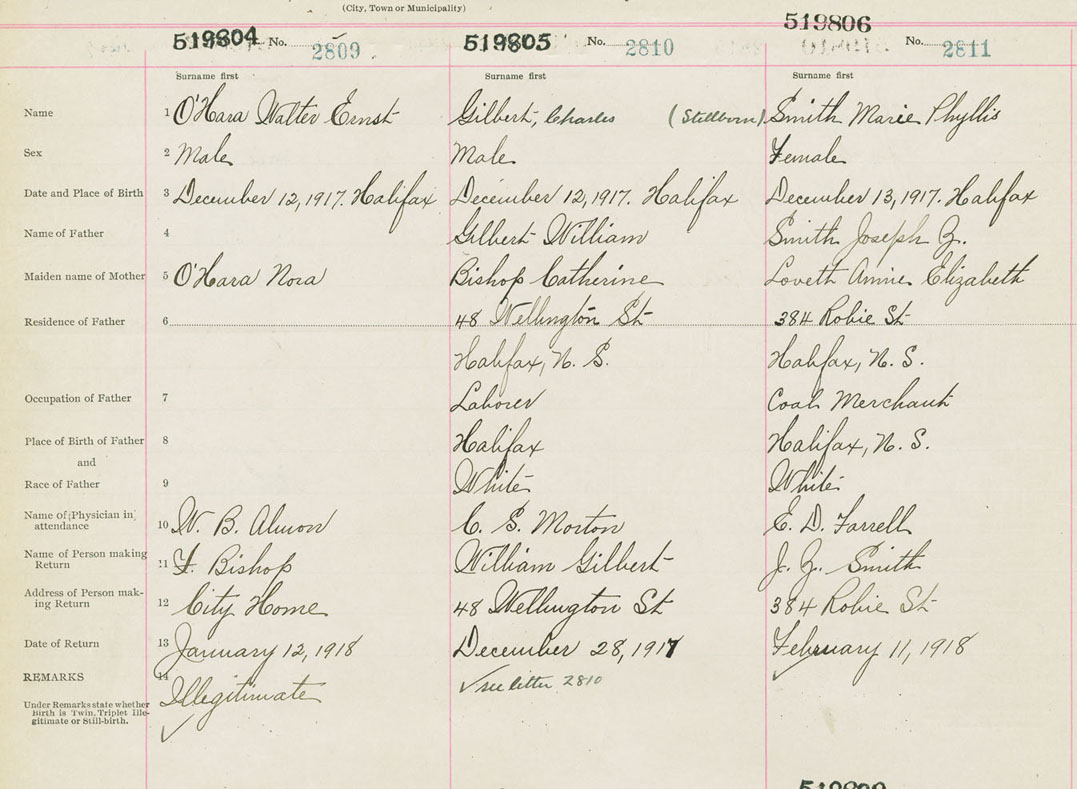 (City, Town or Municipality)
519804 No. 2809 519805 No. 2810 519806 No. 2811
Surname first Surname first Surname first
Name 1 O'Hara Walter Ernst Gilbert, Charles (Stillborn) Smith Marie Phyllis
Sex 2 Male Male Female
Date and Place of Birth 3 December 12, 1917. Halifax December 12, 1917. Halifax December 13, 1917. Halifax
Name of Father 4 Gilbert William Smith Joseph
Maiden name of Mother 5 O'Hara Nora Bishop Catherine Loveth Annie Elizabeth
Residence of Father 6 48 Wellington St 384 Robie St
Halifax, N. S. Halifax, N. S.
Occupation of Father 7 Laborer Coal Merchant
Place of Birth of Father 8 Halifax Halifax, N. S.
and
Race of Father 9 White White
Name of Physician in attendance 10 W. B. Almon C. S. Morton E. D. Farrell
Name of Person making Return 11 F. Bishop William Gilbert J. Smith
Address of Person making Return 12 City Home 48 Wellington St 384 Robie St
Date of Return 13 January 12, 1918 December 28, 1917 February 11, 1918
REMARKS 14 Illegitimate see letter 2810
Under Remarks state whether
Birth is Twin, Triplet Ille-
gitimate or Still-birth.